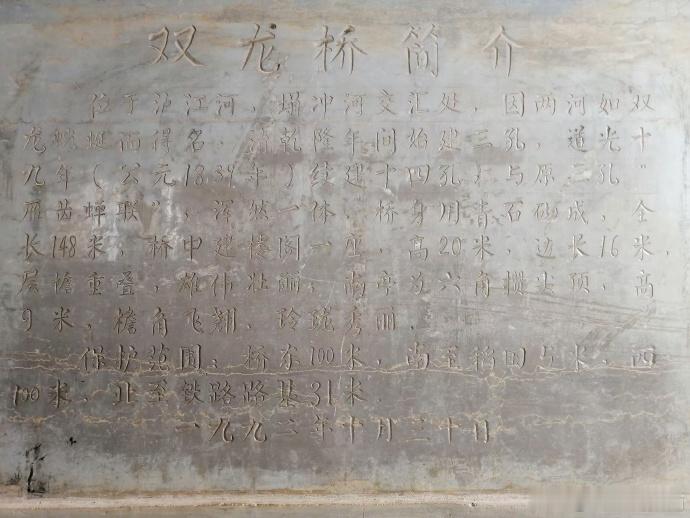 双龙桥简介
位于泸江河、塌冲河交汇处，因两河如双
龙蜿蜒而得名。清乾隆年间始建三孔，道光十
九年(公元1839年)续建十四孔，与原三孔"
雁齿蝉联"，浑然一体，桥身用青石砌成，全
长148米，桥中建楼阁一座，高20米，边长16米，
层檐重叠，雄伟壮丽；南亭为六角攒尖顶，高
9米，檐角飞翘，玲珑秀丽．
保护范围：桥东100米，南至稻田5米，西
100米，北至铁路路基31米．
一九九二年十月三十日